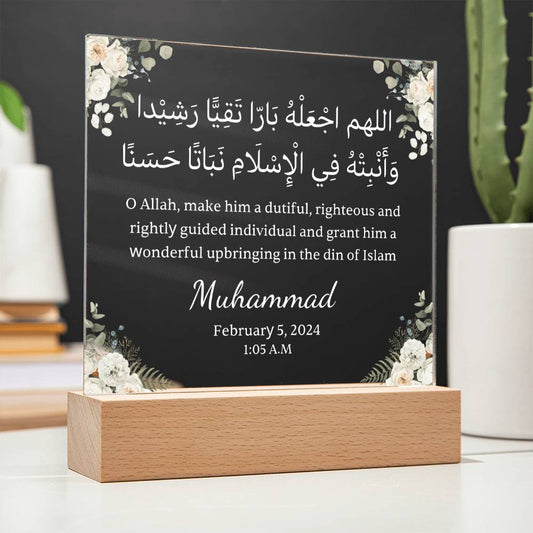 اللهم اجْعَلْهُ بَارّا تَقِيًّا رَشِيْدا
وَأَنْبِتْهُ فِي الْإِسْلَامِ نَبَاتًا حَسَنًا
O Allah, make him a dutiful, righteous and
rightly guided individual and grant him a
wonderful upbringing in the din of Islam
Muhammad
February 5, 2024
1:05 A.M